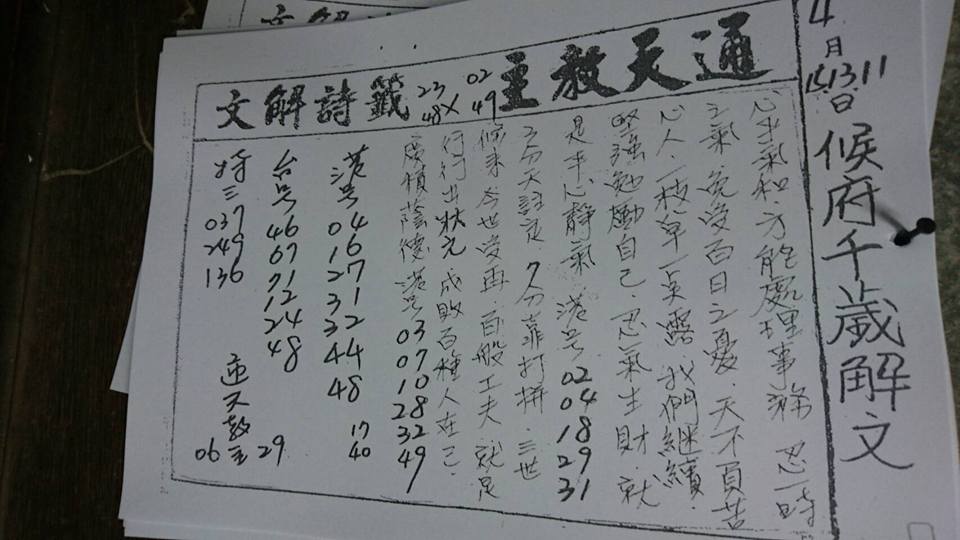 4月11.13.15日候府千歲解文
通天教主
02 49 × 23 48
籤詩解文
心平氣和.方能處理事務 忍一時
之氣.免受百日之憂.天不負苦
心人.一枝草一点露.我們継續.
堅強勉勵自己.忍氣生財.就
是平心静氣.港号 02 04 18 29 31
3分天註定 7分靠打拼.三世
修来今世受再.百般工夫.就是
行行出狀元 成敗百種人在己.
廣積蔭德港号 03 07 10 28 32 49
港号 04 16 27 31 32 44 48 17 40
台号 46 67 71 12 24 48 29
特三 037 249 136 通天教主 06